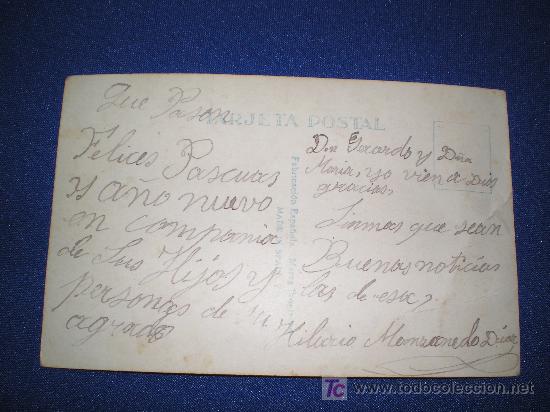 Que Pasen
TARJETA POSTAL
Felices Pascuas
y ano nuevo
en compania
de Sus Hijos y
personas de su
agrado
Fabricación Española
MADRID
Don Gerardo y Dña
Maria, yo vien a Dios
gracias,
Sinmas que sean
Buenas noticias
las de esa,
Hilario Manzanedo Díaz
TC
todocoleccion.net